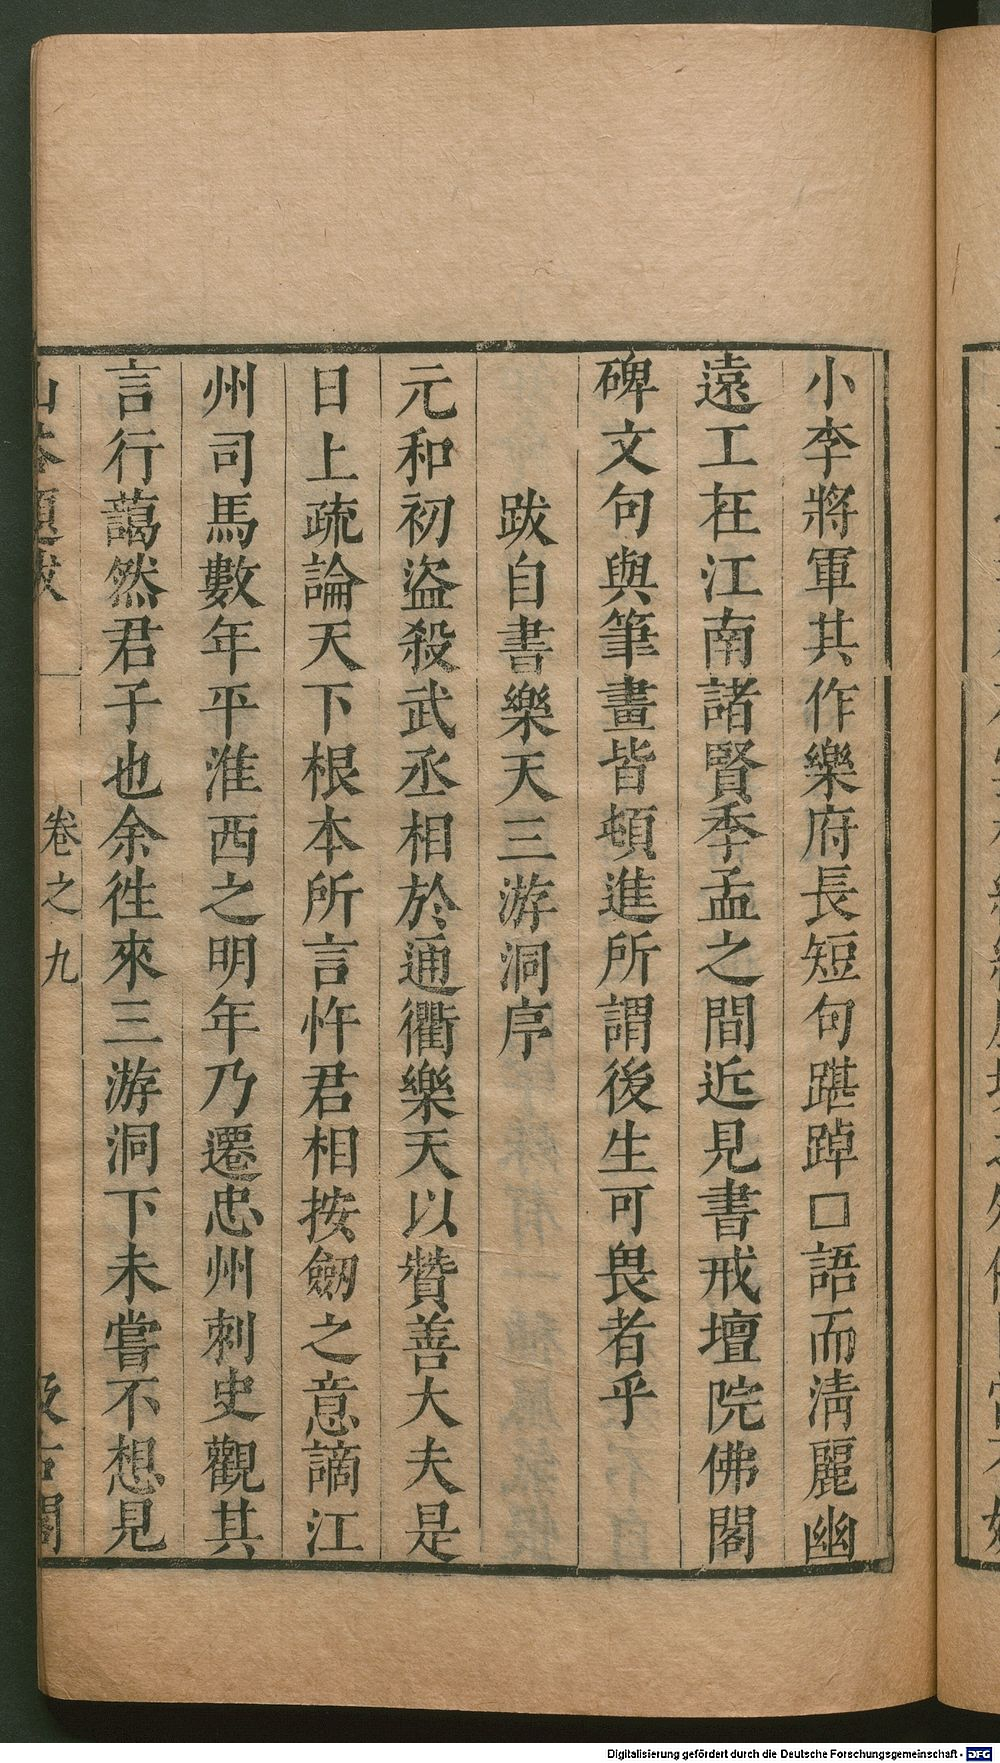 小李將軍其作樂府長短句踸踔口語而淸麗幽
遠工在江南諸賢季孟之間近見書戒壇院佛閣
碑文句與筆畫皆頓進所謂後生可畏者乎
跋自書樂天三游洞序
元和初盜殺武丞相於通衢樂天以贊善大夫是
日上疏論天下根本所言忤君相按劒之意謫江
州司馬數年平淮西之明年乃遷忠州刺史觀其
言行藹然君子也余徃來三游洞下未嘗不想見
山谷題跋 卷之九 汲古閣
Digitalisierung gefördert durch die Deutsche Forschungsgemeinschaft - DFG